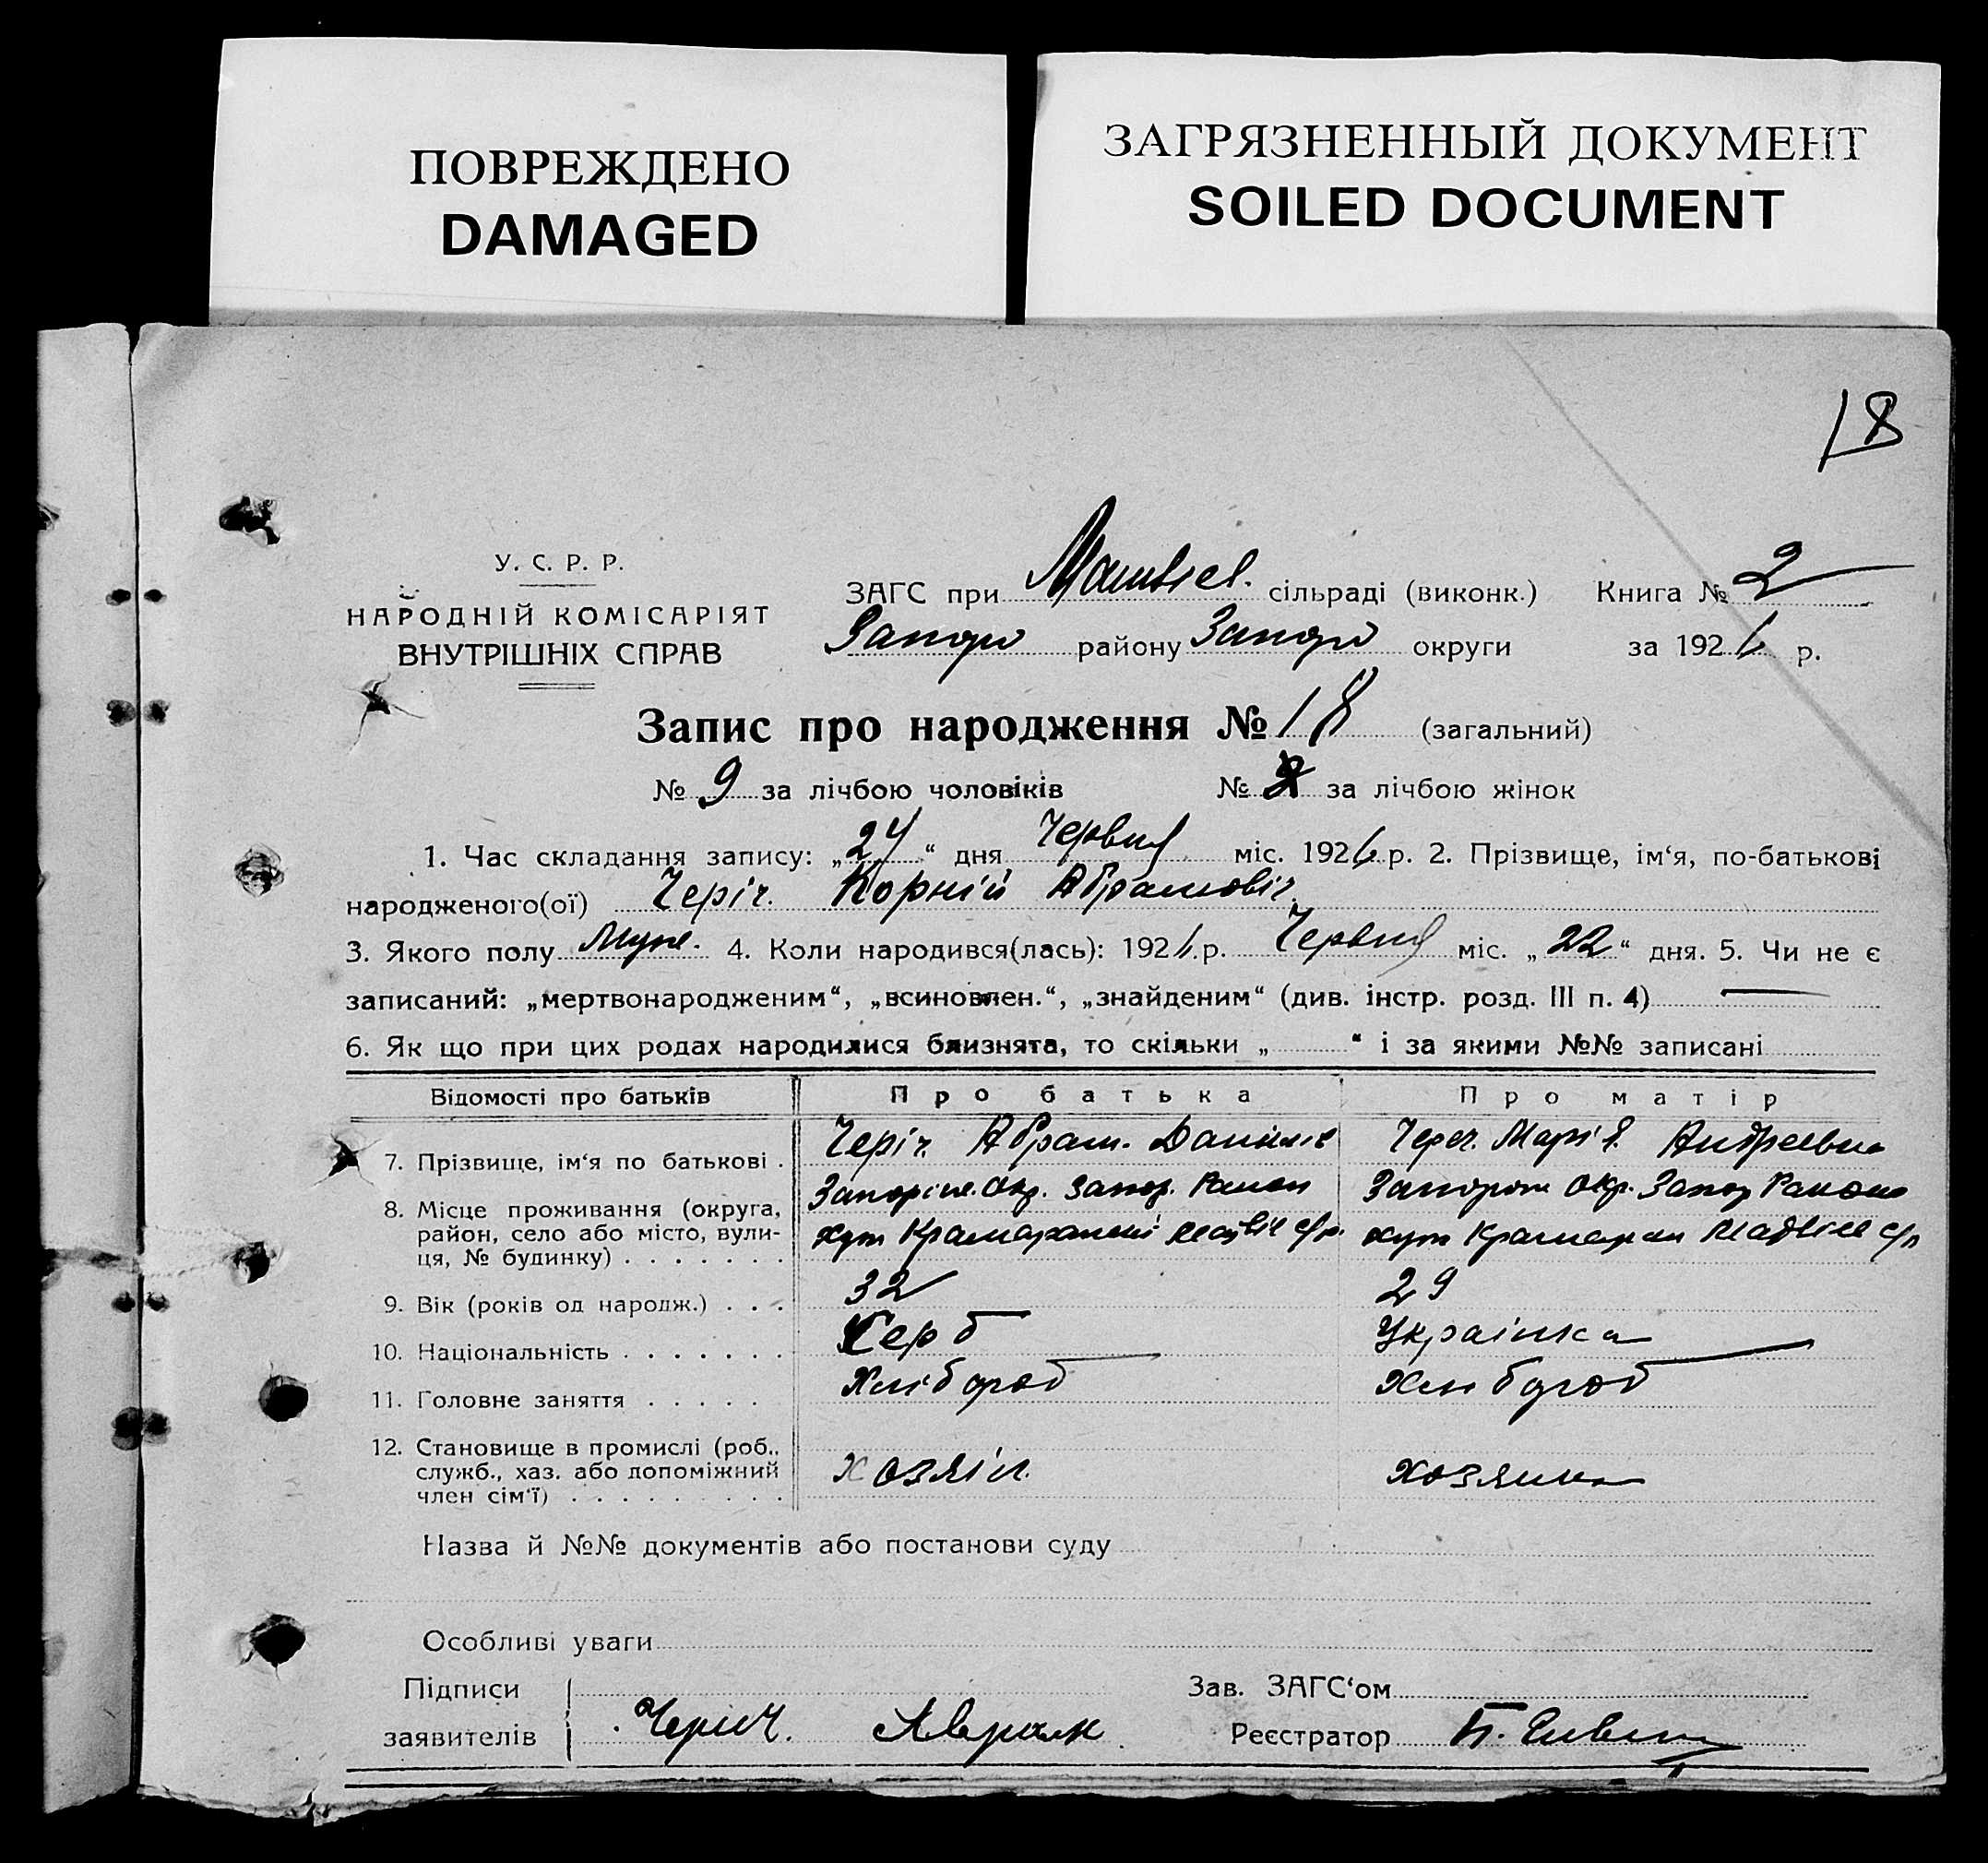 ПОВРЕЖДЕНО
DAMAGED
ЗАГРЯЗНЕННЫЙ ДОКУМЕНТ
SOILED DOCUMENT
18
У. С. Р. Р.
НАРОДНІЙ КОМІСАРІЯТ
ВНУТРІШНІХ СПРАВ
ЗАГС при Матвіев. сільраді (виконк.) Книга № 2
Запор району Запор округи за 1926 р.
Запис про народження № 18 (загальний)
№ 9 за лічбою чоловіків № за лічбою жінок
1. Час складання запису: „24“ дня Червня міс. 1926 р. 2. Прізвище, ім‘я, по-батькові
народженого(ої) Черіч. Корній Абрамовіч.
3. Якого полу Муж. 4. Коли народився(лась): 1926 р. Червня міс. „22“ дня. 5. Чи не є
записаний: „мертвонародженим“, „всиновлен.“, „знайденим“ (див. інстр. розд. III п. 4) —
6. Як що при цих родах народилися близнята, то скільки „ “ і за якими №№ записані
Відомості про батьків Про батька Про матір
7. Прізвище, ім‘я по батькові . Черіч. Абрам. Даніліч Череч. Марія. Андреевна
8. Місце проживання (округа, район, село або місто, вулиця, № будинку) . . . . . . .
Запоріж. Окр. Запор. Район
хут с/р.
Запорож Окр. Запор Района
хут с/р
9. Вік (років од народж.) . . . 32 29
10. Національність . . . . . . . Серб Українка
11. Головне заняття . . . . . Хлібороб Хлибороб
12. Становище в промислі (роб., служб., хаз. або допоміжний член сім‘ї) . . . . . . . . . Хозяін. хозяика
Назва й №№ документів або постанови суду
Особливі уваги
Підписи
заявителів Черич. Аврам
Зав. ЗАГС‘ом
Реєстратор